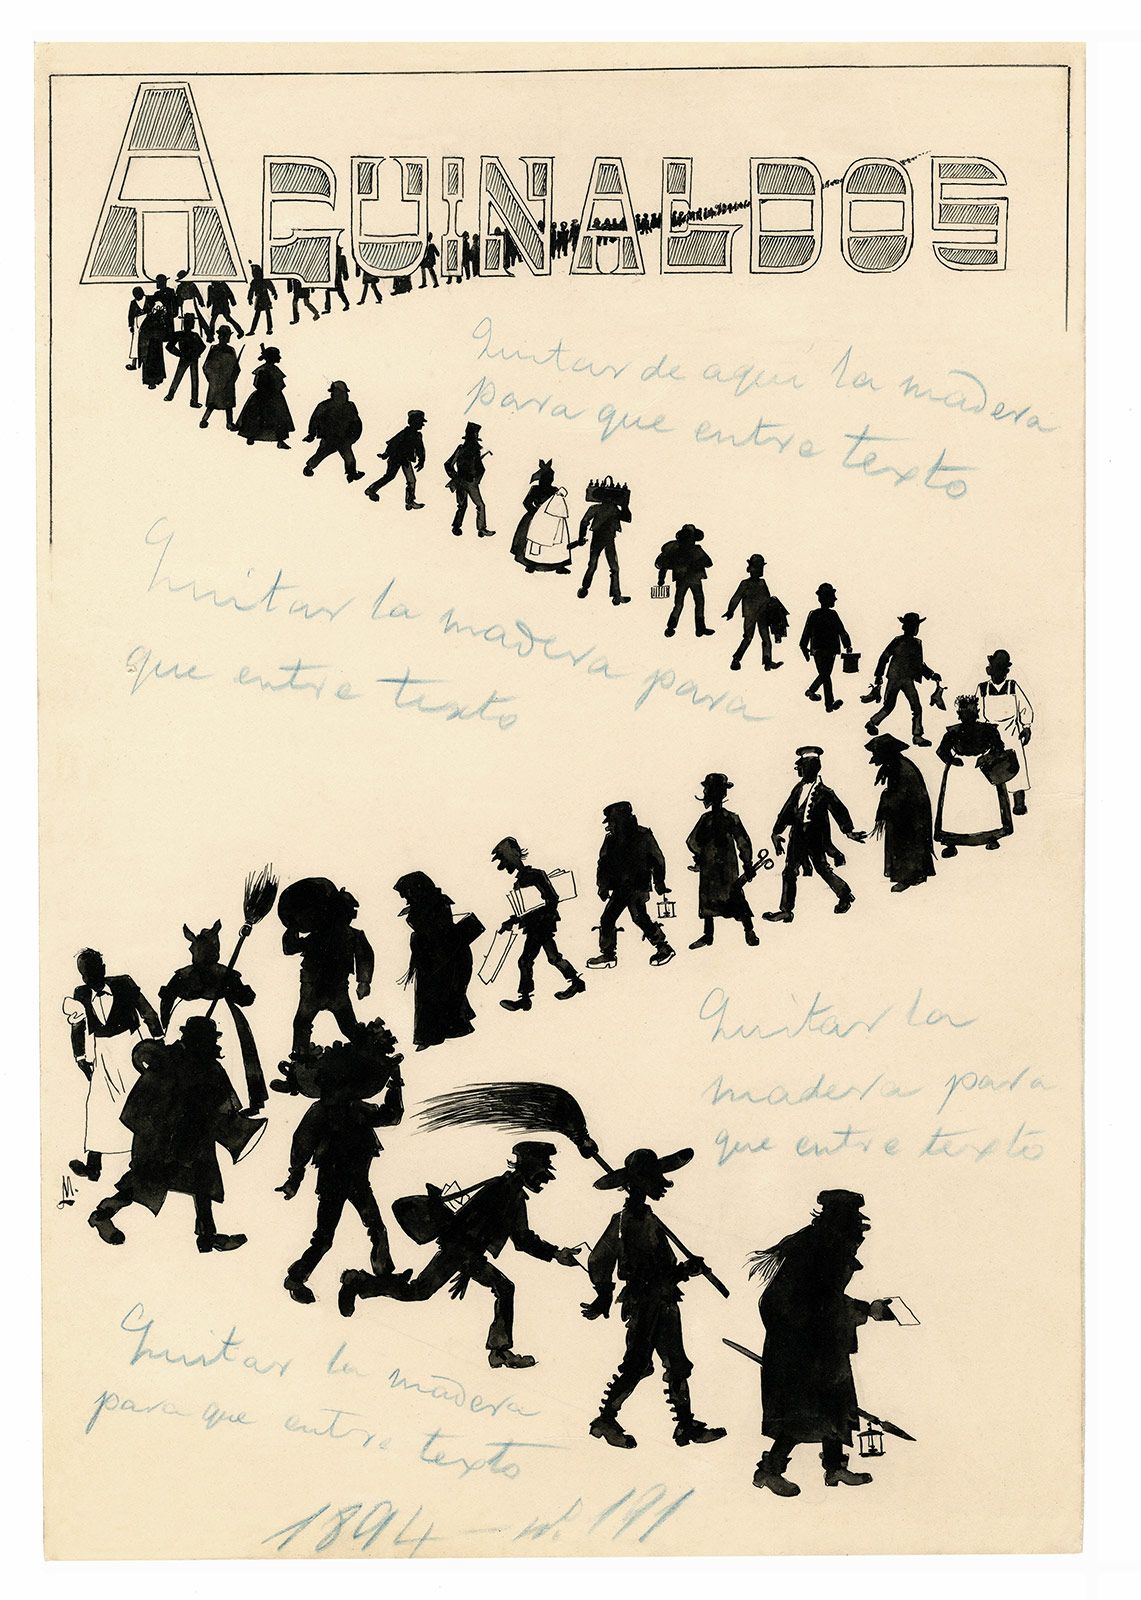 AGUINALDOS
Quitar de aqui la madera
para que entre texto
Quitar la madera para
que entre texto
Quitar la
madera para
que entre texto
M.
Quitar la madera
para que entre texto
1894 - nº. 191